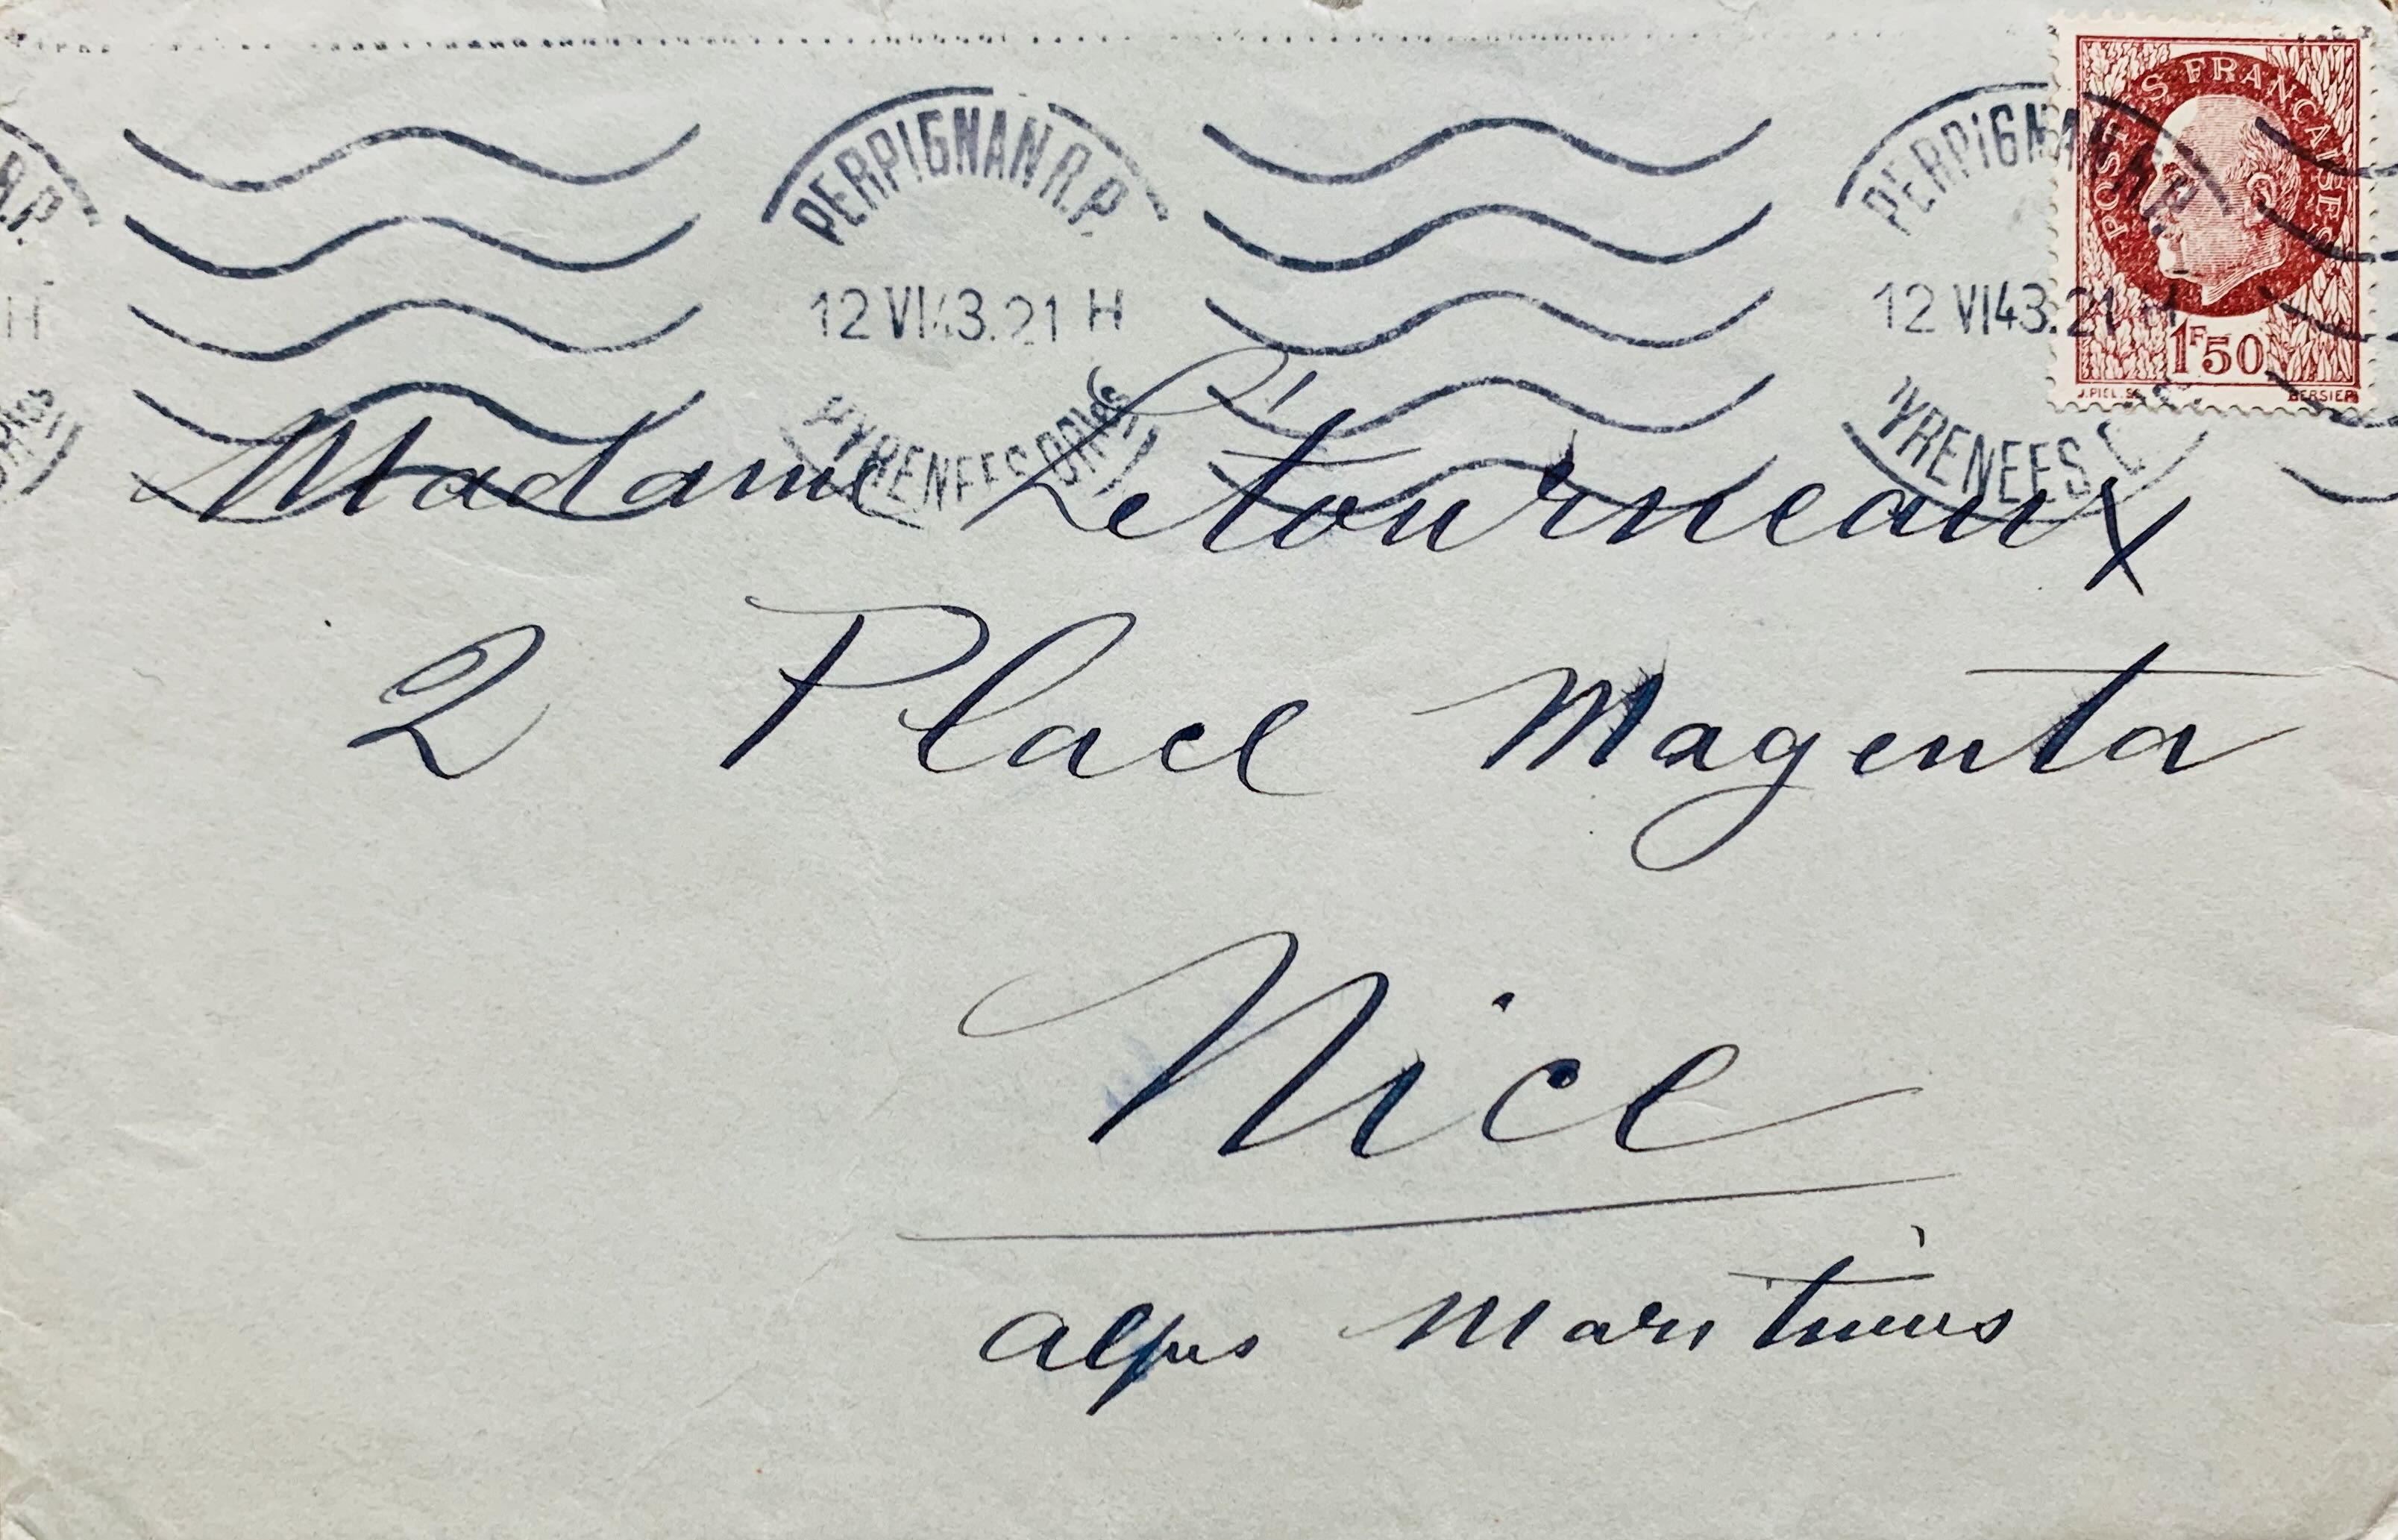 PERPIGNAN R.P.
12 VI 43. 21 H
PYRENEES ORIles
PERPIGNAN R.P.
12 VI 43. 21 H
PYRENEES
POSTES FRANÇAISES
1F50
J. PIEL. SC
BERSIER
R.P.
H
Madame Létourneaux
2 Place Magenta
Nice
Alpes Maritimes